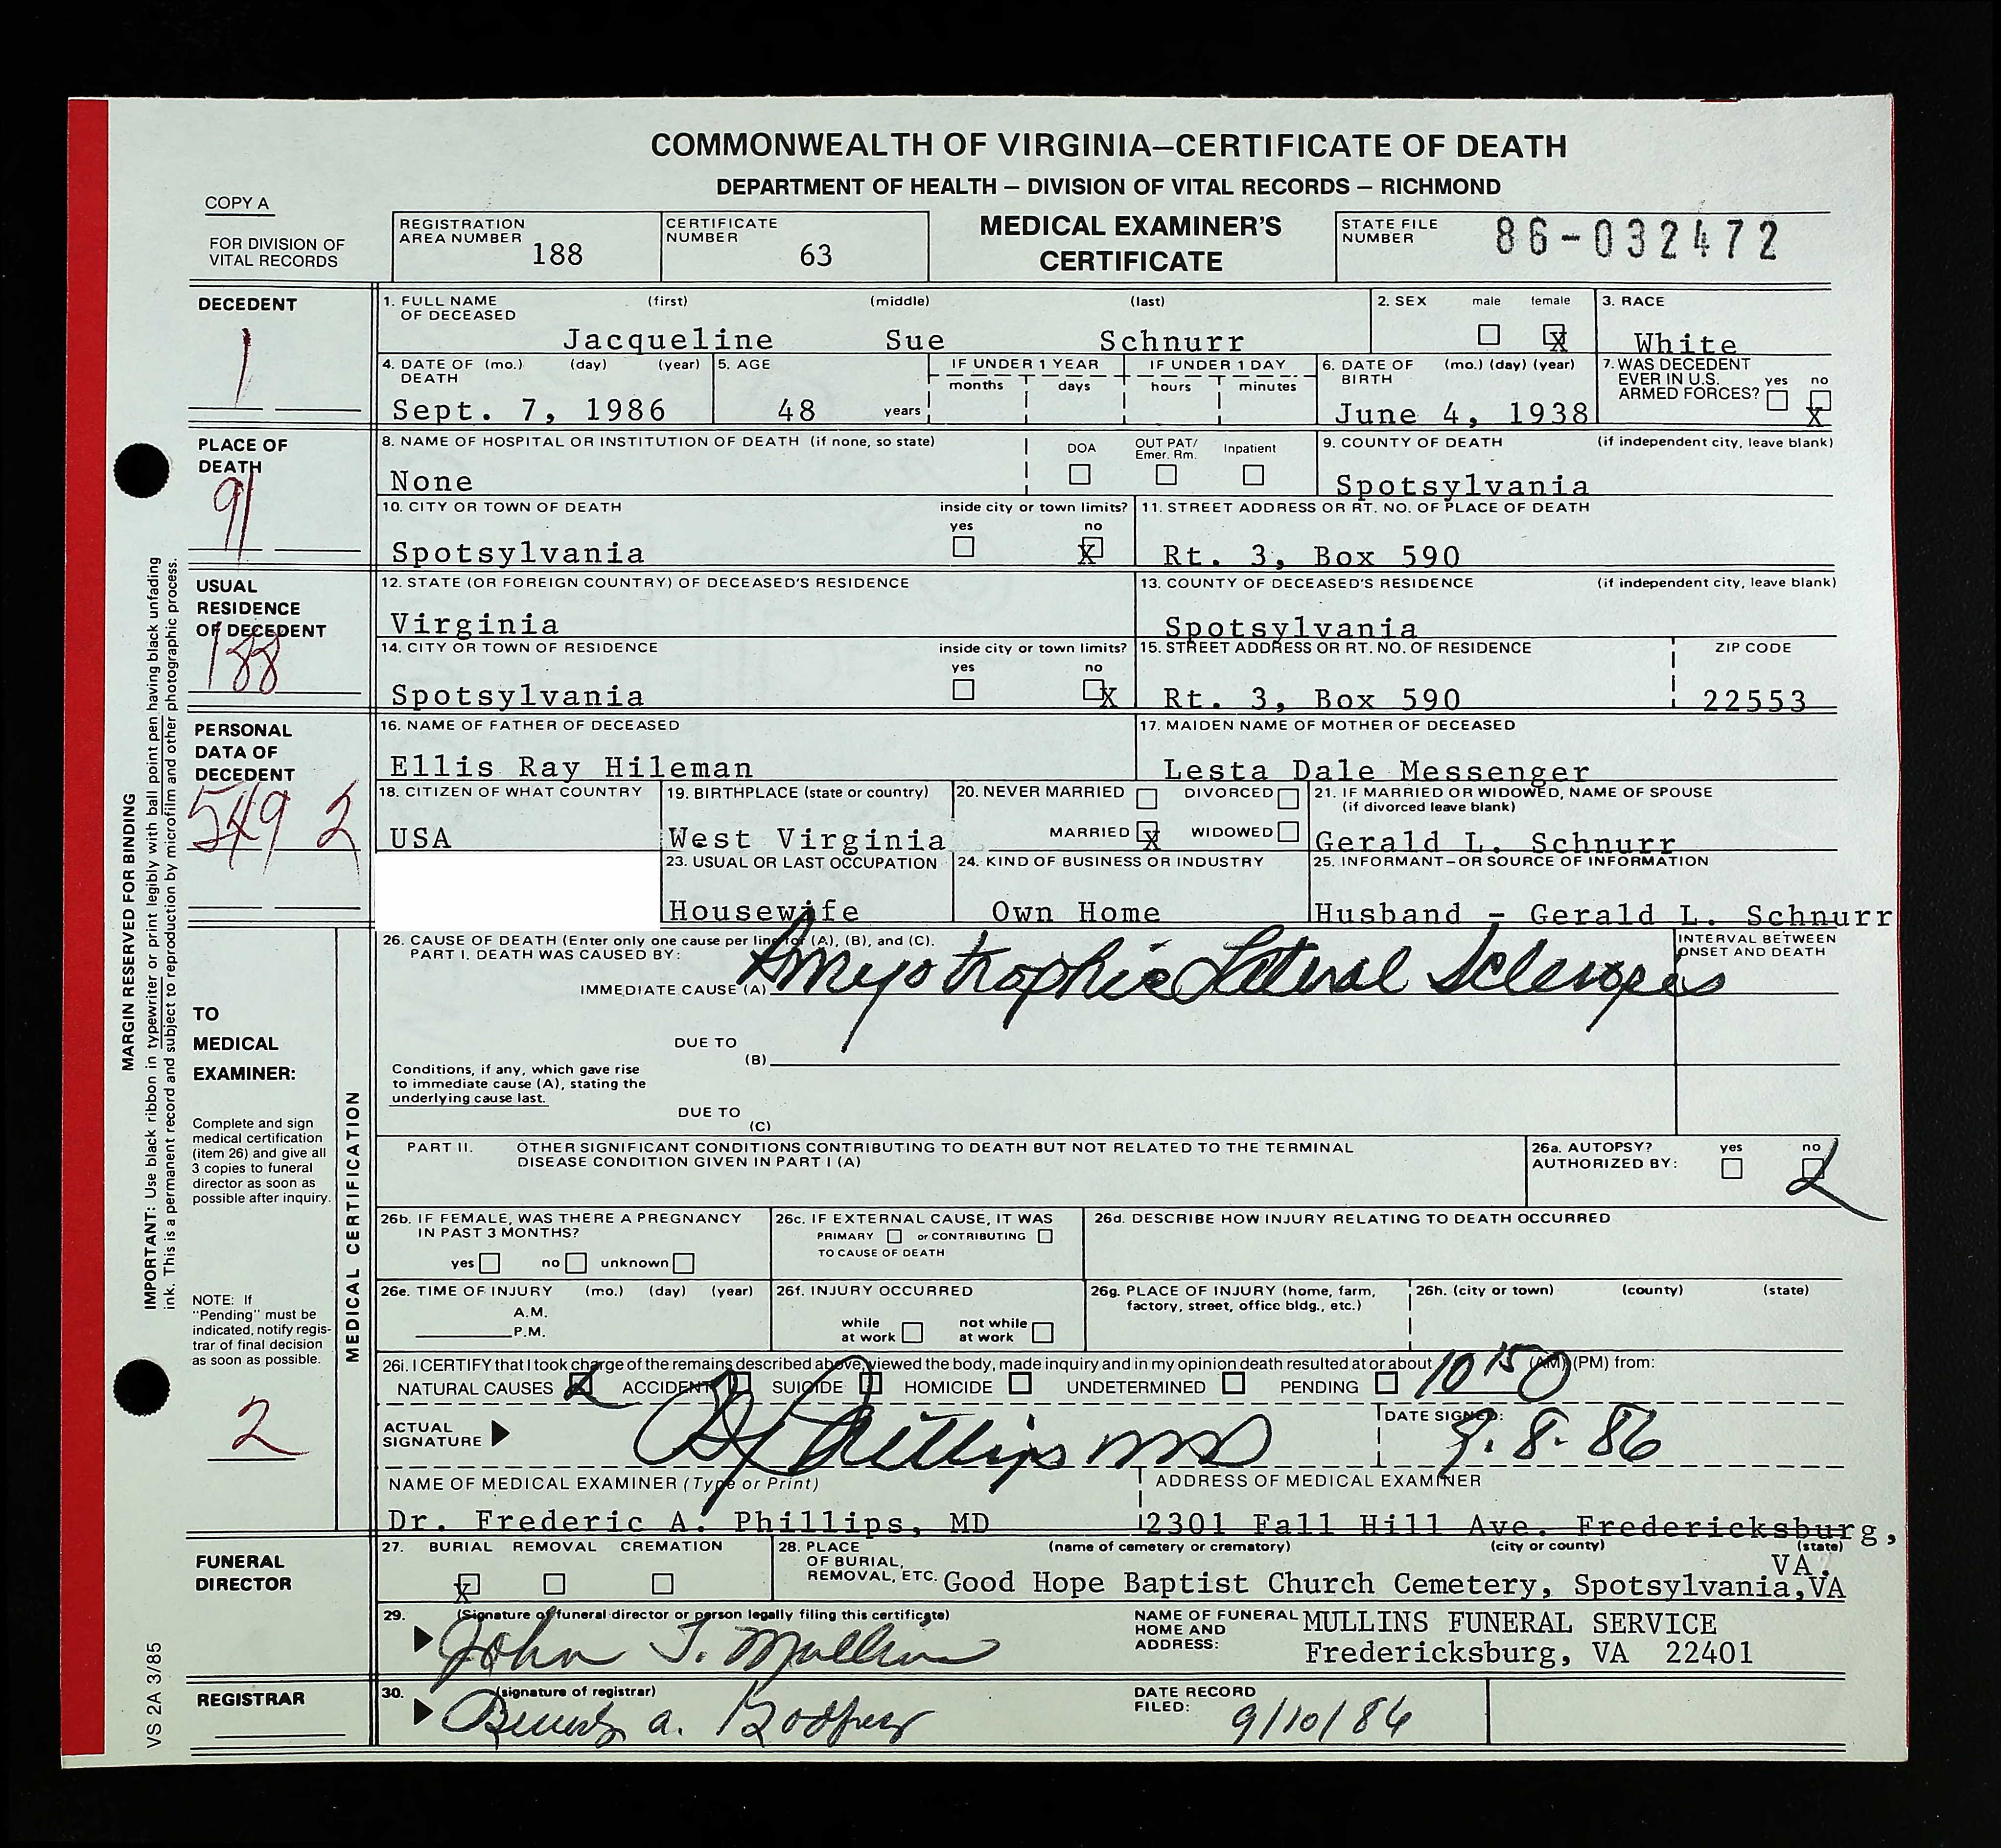 COMMONWEALTH OF VIRGINIA—CERTIFICATE OF DEATH
DEPARTMENT OF HEALTH – DIVISION OF VITAL RECORDS – RICHMOND
COPY A
FOR DIVISION OF VITAL RECORDS
REGISTRATION AREA NUMBER 188
CERTIFICATE NUMBER 63
MEDICAL EXAMINER'S CERTIFICATE
STATE FILE NUMBER 86-032472
DECEDENT
1
1. FULL NAME OF DECEASED (first) (middle) (last)
Jacqueline Sue Schnurr
2. SEX male female X
3. RACE
White
4. DATE OF DEATH (mo.) (day) (year)
Sept. 7, 1986
5. AGE
48 years
IF UNDER 1 YEAR months days
IF UNDER 1 DAY hours minutes
6. DATE OF BIRTH (mo.) (day) (year)
June 4, 1938
7. WAS DECEDENT EVER IN U.S. ARMED FORCES? yes no X
PLACE OF DEATH
91
8. NAME OF HOSPITAL OR INSTITUTION OF DEATH (if none, so state)
None
DOA OUT PAT/ Emer. Rm. Inpatient
9. COUNTY OF DEATH (if independent city, leave blank)
Spotsylvania
10. CITY OR TOWN OF DEATH inside city or town limits? yes no X
Spotsylvania
11. STREET ADDRESS OR RT. NO. OF PLACE OF DEATH
Rt. 3, Box 590
USUAL RESIDENCE OF DECEDENT
188
12. STATE (OR FOREIGN COUNTRY) OF DECEASED'S RESIDENCE
Virginia
13. COUNTY OF DECEASED'S RESIDENCE (if independent city, leave blank)
Spotsylvania
14. CITY OR TOWN OF RESIDENCE inside city or town limits? yes no X
Spotsylvania
15. STREET ADDRESS OR RT. NO. OF RESIDENCE
Rt. 3, Box 590
ZIP CODE
22553
PERSONAL DATA OF DECEDENT
549 2
16. NAME OF FATHER OF DECEASED
Ellis Ray Hileman
17. MAIDEN NAME OF MOTHER OF DECEASED
Lesta Dale Messenger
18. CITIZEN OF WHAT COUNTRY
USA
19. BIRTHPLACE (state or country)
West Virginia
20. NEVER MARRIED DIVORCED
MARRIED X WIDOWED
21. IF MARRIED OR WIDOWED, NAME OF SPOUSE (if divorced leave blank)
Gerald L. Schnurr
23. USUAL OR LAST OCCUPATION
Housewife
24. KIND OF BUSINESS OR INDUSTRY
Own Home
25. INFORMANT–OR SOURCE OF INFORMATION
Husband - Gerald L. Schnurr
MARGIN RESERVED FOR BINDING
IMPORTANT: Use black ribbon in typewriter or print legibly with ball point pen having black unfading
ink. This is a permanent record and subject to reproduction by microfilm and other photographic process.
TO MEDICAL EXAMINER:
Complete and sign medical certification (item 26) and give all 3 copies to funeral director as soon as possible after inquiry.
NOTE: If "Pending" must be indicated, notify registrar of final decision as soon as possible.
2
MEDICAL CERTIFICATION
26. CAUSE OF DEATH (Enter only one cause per line for (A), (B), and (C).
PART I. DEATH WAS CAUSED BY:
INTERVAL BETWEEN ONSET AND DEATH
IMMEDIATE CAUSE (A) Amyotrophic Lateral Sclerosis
DUE TO (B)
Conditions, if any, which gave rise to immediate cause (A), stating the underlying cause last.
DUE TO (C)
PART II. OTHER SIGNIFICANT CONDITIONS CONTRIBUTING TO DEATH BUT NOT RELATED TO THE TERMINAL
DISEASE CONDITION GIVEN IN PART I (A)
26a. AUTOPSY? yes no
AUTHORIZED BY:
26b. IF FEMALE, WAS THERE A PREGNANCY IN PAST 3 MONTHS?
yes no unknown
26c. IF EXTERNAL CAUSE, IT WAS
PRIMARY or CONTRIBUTING
TO CAUSE OF DEATH
26d. DESCRIBE HOW INJURY RELATING TO DEATH OCCURRED
26e. TIME OF INJURY (mo.) (day) (year)
A.M.
P.M.
26f. INJURY OCCURRED
while at work not while at work
26g. PLACE OF INJURY (home, farm, factory, street, office bldg., etc.)
26h. (city or town) (county) (state)
26i. I CERTIFY that I took charge of the remains described above, viewed the body, made inquiry and in my opinion death resulted at or about 10 15 (AM) (PM) from:
NATURAL CAUSES ACCIDENT SUICIDE HOMICIDE UNDETERMINED PENDING
ACTUAL SIGNATURE Phillips MD
DATE SIGNED: 9. 8. 86
NAME OF MEDICAL EXAMINER (Type or Print)
Dr. Frederic A. Phillips, MD
ADDRESS OF MEDICAL EXAMINER
2301 Fall Hill Ave. Fredericksburg, VA.
FUNERAL DIRECTOR
27. BURIAL REMOVAL CREMATION
X
28. PLACE OF BURIAL, REMOVAL, ETC. (name of cemetery or crematory) (city or county) (state)
Good Hope Baptist Church Cemetery, Spotsylvania,VA
29. (Signature of funeral director or person legally filing this certificate)
John T. Mullins
NAME OF FUNERAL HOME AND ADDRESS:
MULLINS FUNERAL SERVICE
Fredericksburg, VA 22401
REGISTRAR
30. (signature of registrar)
Beverly A. Godfrey
DATE RECORD FILED: 9/10/86
VS 2A 3/85